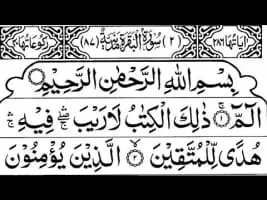 اٰیَاتُهَا ٢٨٦ (٢) سُوْرَةُ الْبَقَرَةِ مَدَنِيَّةٌ (٨٧) رُكُوْعَاتُهَا
بِسْمِ اللهِ الرَّحْمٰنِ الرَّحِيْمِ
الٓمّٓ ۝١ ذٰلِكَ الْكِتٰبُ لَا رَيْبَ ۛ فِيْهِ ۛ
هُدًى لِّلْمُتَّقِيْنَ ۝٢ الَّذِيْنَ يُؤْمِنُوْنَ